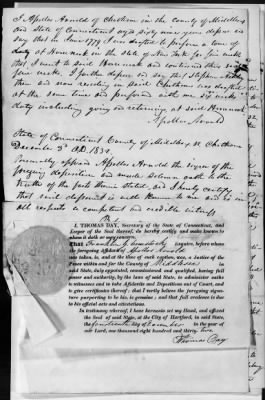 I Apollos Arnold of Chatham in the County of Middlesex
and State of Connecticut aged sixty nine years depose &
say that in June 1779 I was drafted to perform a tour of
duty at Horseneck in the State of New York for six weeks
that I went to said Horseneck and continued there six
weeks. I further depose and say that Stephen
then and now residing in said Chatham was drafted
at the same time and performed with me six weeks
duty including going and returning at said Horseneck
Apollos Arnold
State of Connecticut County of Middlesex SS Chatham
December 3d AD. 1832.
Personally appeared Apollos Arnold the signer of the
foregoing deposition and made Solemn oath to the
truth of the facts therein stated, and I hereby certify
that said deponent is well known to me and is in
all respects a competent and credible witness
I, THOMAS DAY, Secretary of the State of Connecticut, and
Keeper of the Seal thereof, do hereby certify and make known to
whom it doth or may concern,
That Franklin G. Esquire, before
whom the foregoing affidavit of Apollos Arnold
was taken, is, and at the time of such caption, was, a Justice of the
Peace within and for the County of Middlesex in
said State, duly appointed, commissioned and qualified, having full
power and authority, by the laws of said State, to administer oaths
to witnesses and to take Affidavits and Depositions out of Court, and
to give certificates thereof; that I verily believe the foregoing signature
purporting to be his, is genuine; and that full credence is due
to his official acts and attestations.
In testimony whereof, I have hereunto set my Hand, and affixed
the Seal of said State, at the City of Hartford, in said State,
this day of December in the year of
our Lord, one thousand eight hundred and thirty two
Thomas Day